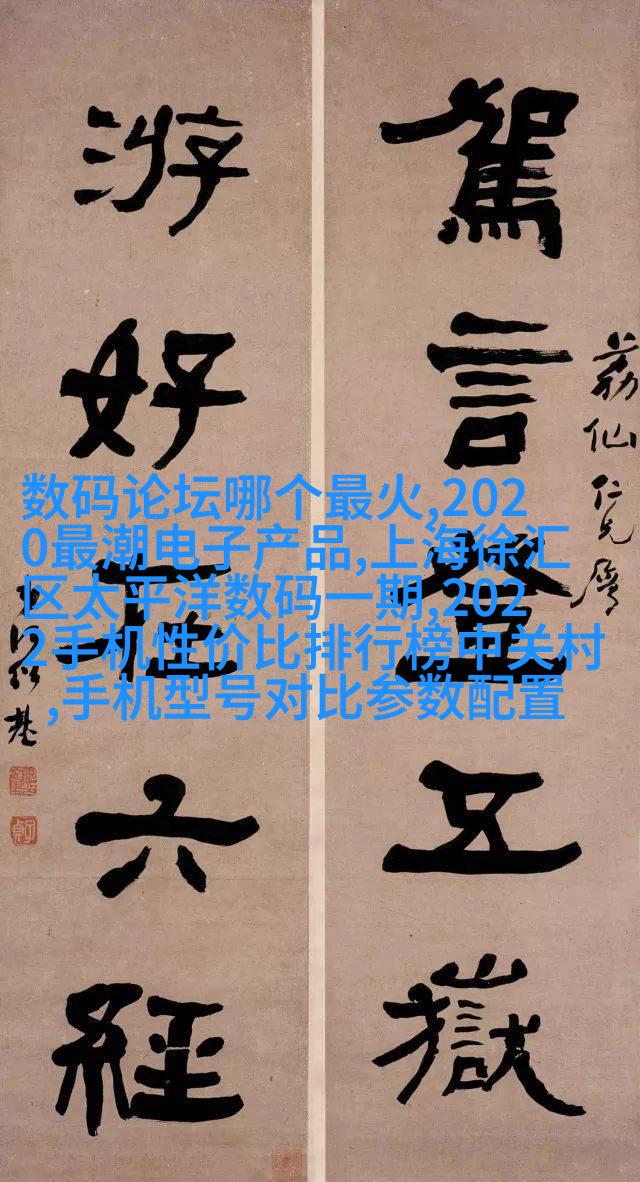 荔仙仁兄屬
駕言登五嶽
游好在六經
何紹基
子貞
数码论坛哪个最火,202
0最潮电子产品,上海徐汇
区太平洋数码一期,202
2手机性价比排行榜中关村
,手机型号对比参数配置